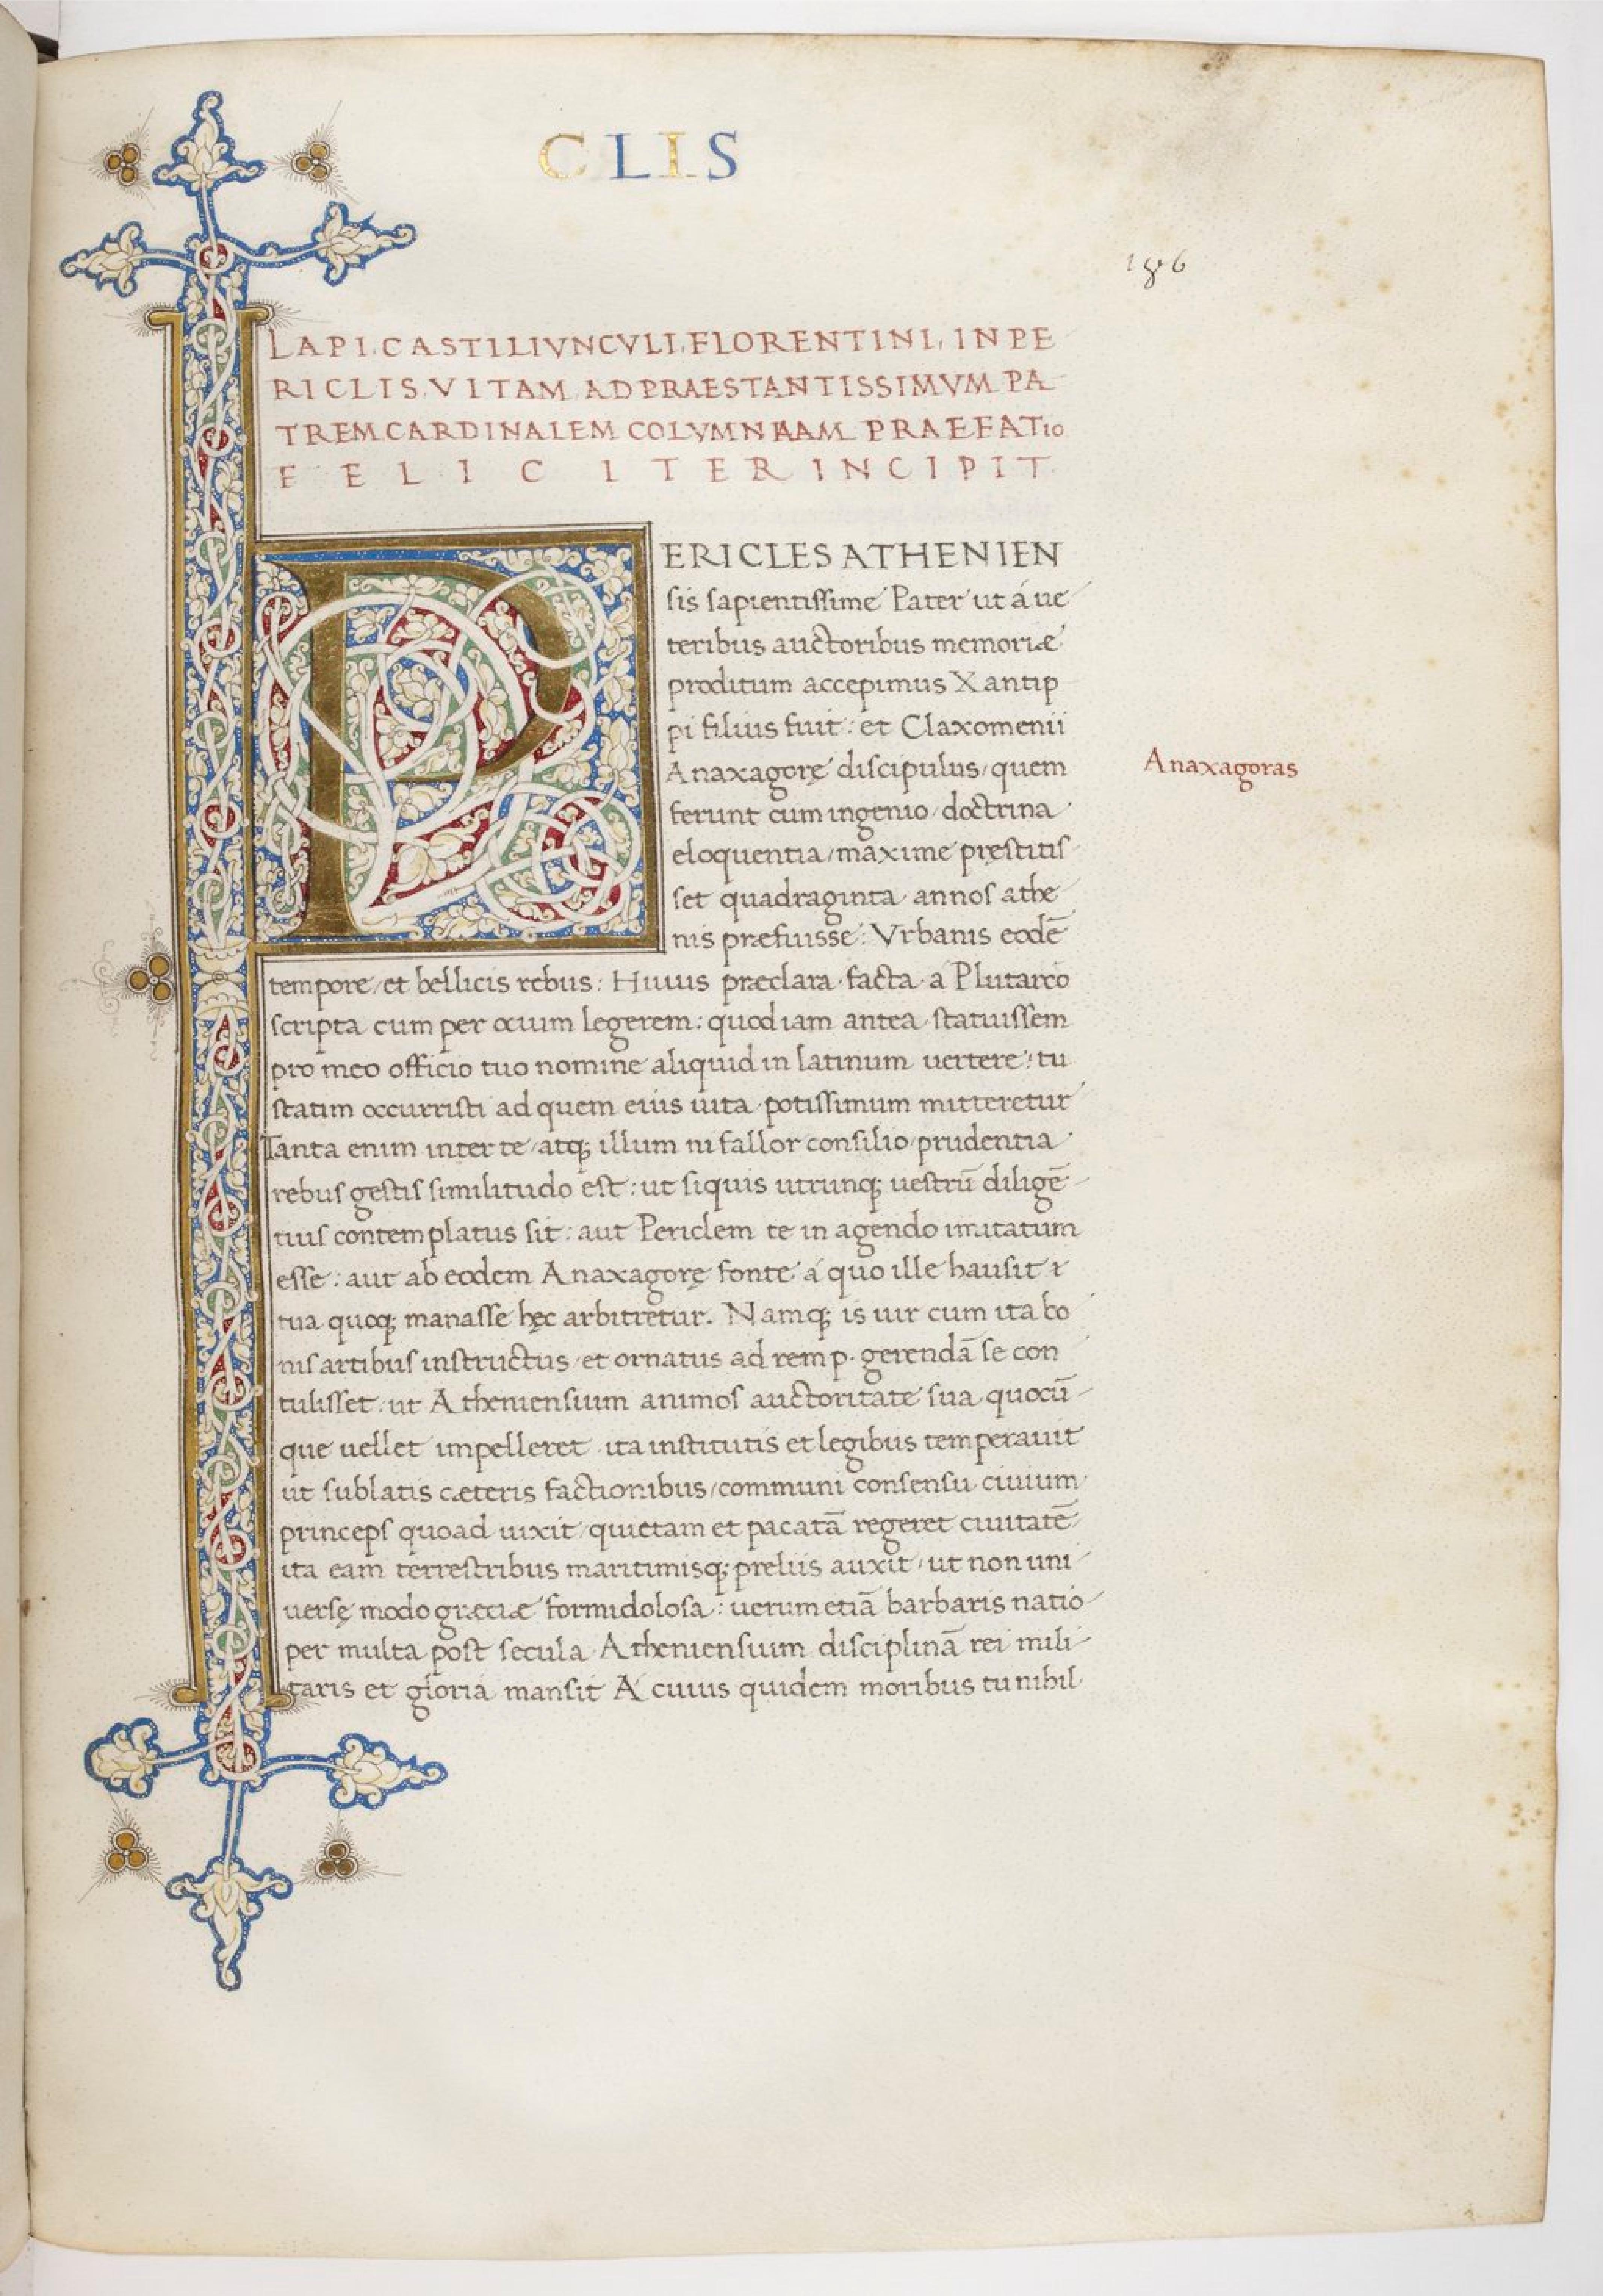 CLIS
186
LAPI. CASTILIVNCVLI. FLORENTINI. IN PE
RICLIS. VITAM. AD PRAESTANTISSIMVM PA
TREM. CARDINALEM COLVMNAAM PRAEFATio
FELICITER INCIPIT
PERICLES ATHENIEN
sis sapientissime Pater ut á ue
teribus auctoribus memoriæ
proditum accepimus Xantip
pi filius fuit: et Claxomenii
Anaxagorę discipulus/ quem
Anaxagoras
ferunt cum ingenio/ doctrina
eloquentia/ maxime pręstitis
set quadraginta annos athe
nis præfuisse: Vrbanis eodē
tempore/ et bellicis rebus: Huius præclara facta a Plutarco
scripta cum per ocium legerem: quod iam antea statuissem
pro meo officio tuo nomine aliquid in latinum uertere: tu
statim occurristi ad quem eius uita potissimum mitteretur
Tanta enim inter te/ atq; illum ni fallor consilio/ prudentia
rebus gestis similitudo est: ut siquis utrunq; uestrū diligē-
tius contemplatus sit: aut Periclem te in agendo imitatum
esse: aut ab eodem Anaxagorę fonte á quo ille hausit &
tua quoq; manasse hęc arbitretur. Namq; is uir cum ita bo
nis artibus instructus/ et ornatus ad rem p. gerendā se con
tulisset: ut Atheniensium animos auctoritate sua quocū-
que uellet impelleret ita institutis et legibus temperauit
ut sublatis cæteris factionibus/ communi consensu ciuium
princeps quoad uixit/ quietam et pacatā regeret ciuitatē
ita eam terrestribus maritimisq; preliis auxit/ ut non uni
uersę modo græciæ formidolosa: uerum etiā barbaris natio-
per multa post secula Atheniensium disciplinā rei mili-
taris et gloria mansit A cuius quidem moribus tu nihil